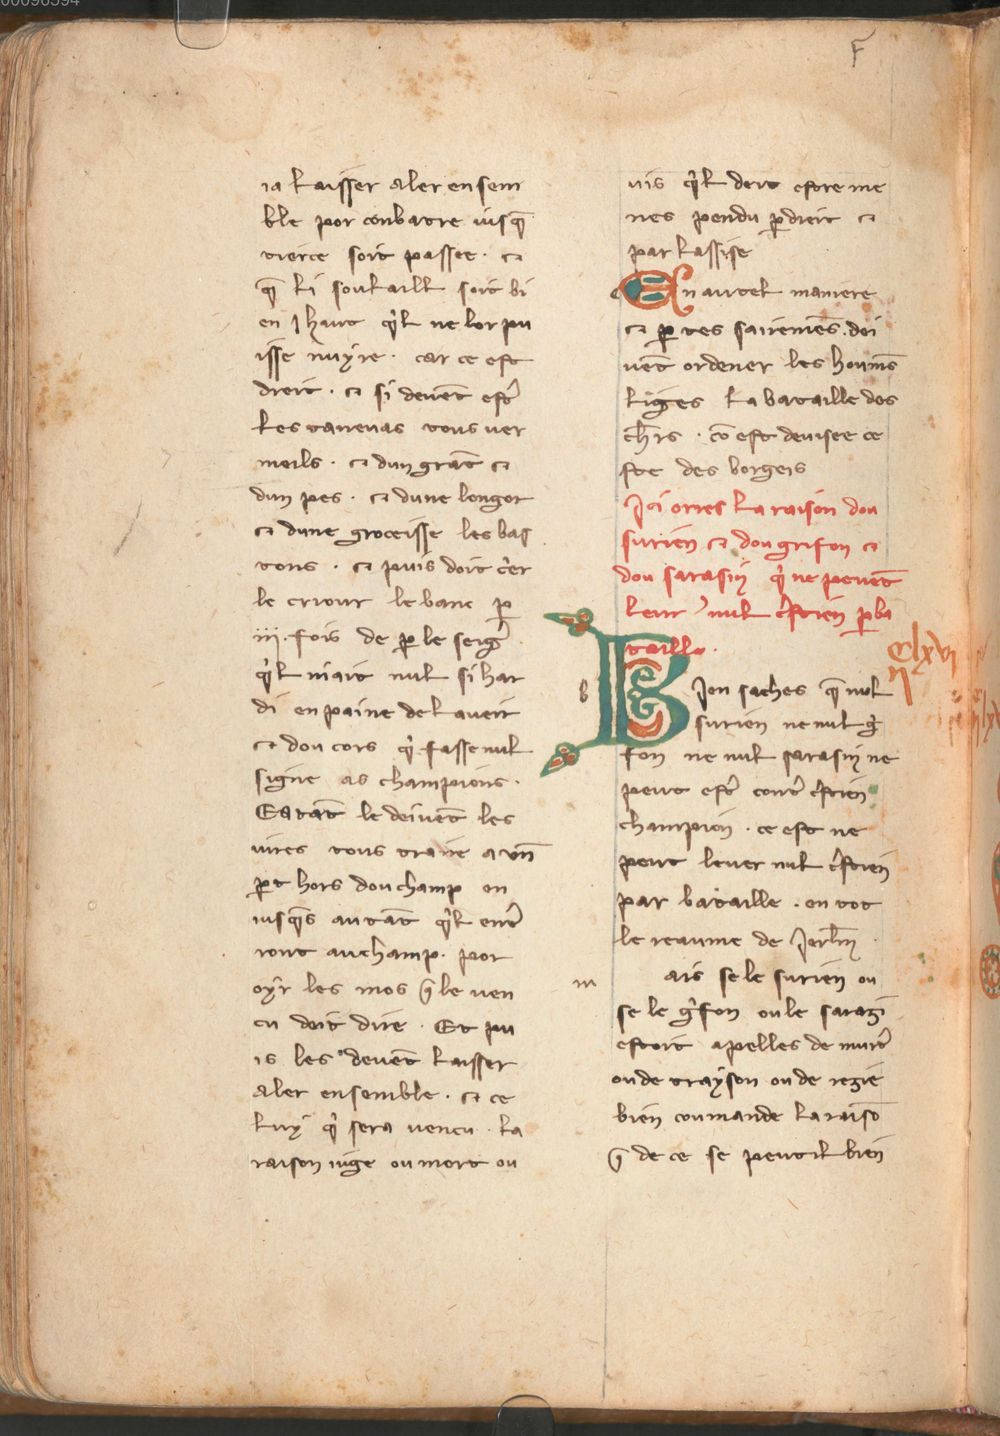 00096394
F
ia laisser aler ensem
ble por conbatre iusq̄
tierce soit passee . et
q̄ li soulaill soit bi
en ihaut q'l ne lor pu
isse nuyre . car ce est
dreit . et si deuēt estr'
les taneuas tous uer
meils . et dun grāt et
dun pes . et dune longor
et dune groceisse les bas
tons . et puis doit c'er
le criour le banc p
iii. fois de p le seigr'
q'l niait nul si har
di en paine de l aueir
et dou cors q' fasse nul
signe as champions .
Eatāt le deiuēt les
iures tous traire a un̄
pt hors dou champ en
iusq̄s autāt q'l entr'
ront au champ . por
oyr les mos q̄ le uen
cu doit dire . Et pu
is les deuēt laisser
aler ensemble . et ce
luy q' sera uencu . la
raison iuge ou mort ou
uis q'l deit estre me
nes pendu p dreit et
par lassise
En autel maniere
et p tes sairemēs . dei
uēt ordener les houmēs
liges la bataille dos
ch'rs . cō est deuisee ce
ste des borgeis
Ici orres la raison dou
surien et dou grifon et
dou sarasin q' ne peuēt
leuer nul c'stien p ba
taille .
clxvi
b
Bien saches q̄ nul
surien ne nul g'
fon ne nul sarasin ne
peut estr' contr' c'stien
champion . ce est ne
peut leuer nul c'stien
par bataille . en tot
le reaume de Jerl'm .
m
ais se le surien ou
se le g'fon ou le sarazī
estoit apelles de murt'
ou de trayson ou de rezie
bien coumande la raisō
q̄ de ce se peut il bien